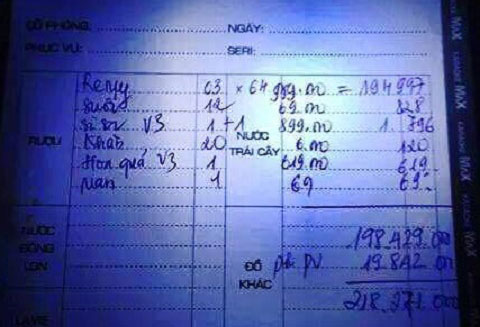 SỐ PHÒNG: NGÀY:
PHỤC VỤ: SERI:
Remy 03 × 64 999.000 = 194 997
Suối 12 69.000 828
Si sou V3 1 + 1 899.000 1 796
RƯỢU
NƯỚC TRÁI CÂY
Khăn 20 6.000 120
Hoa quả V3 1 619.000 619
Nan 1 69 69
NƯỚC
ĐÓNG
LON
198.429.000
ĐỒ KHÁC
phí PV 19.842.000
218.271.000
LAVIE
MiX